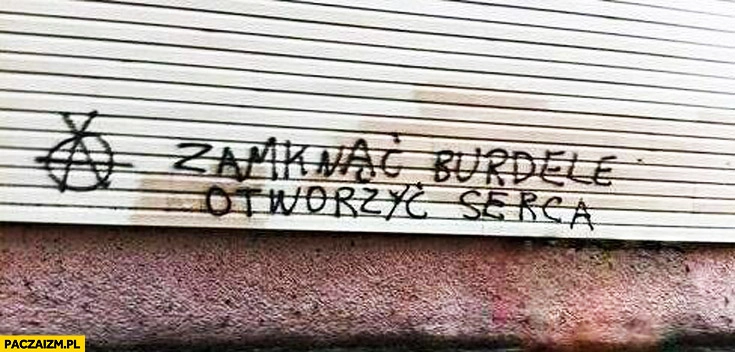 ZAMKNĄĆ BURDELE
OTWORZYĆ SERCA
PACZAIZM.PL